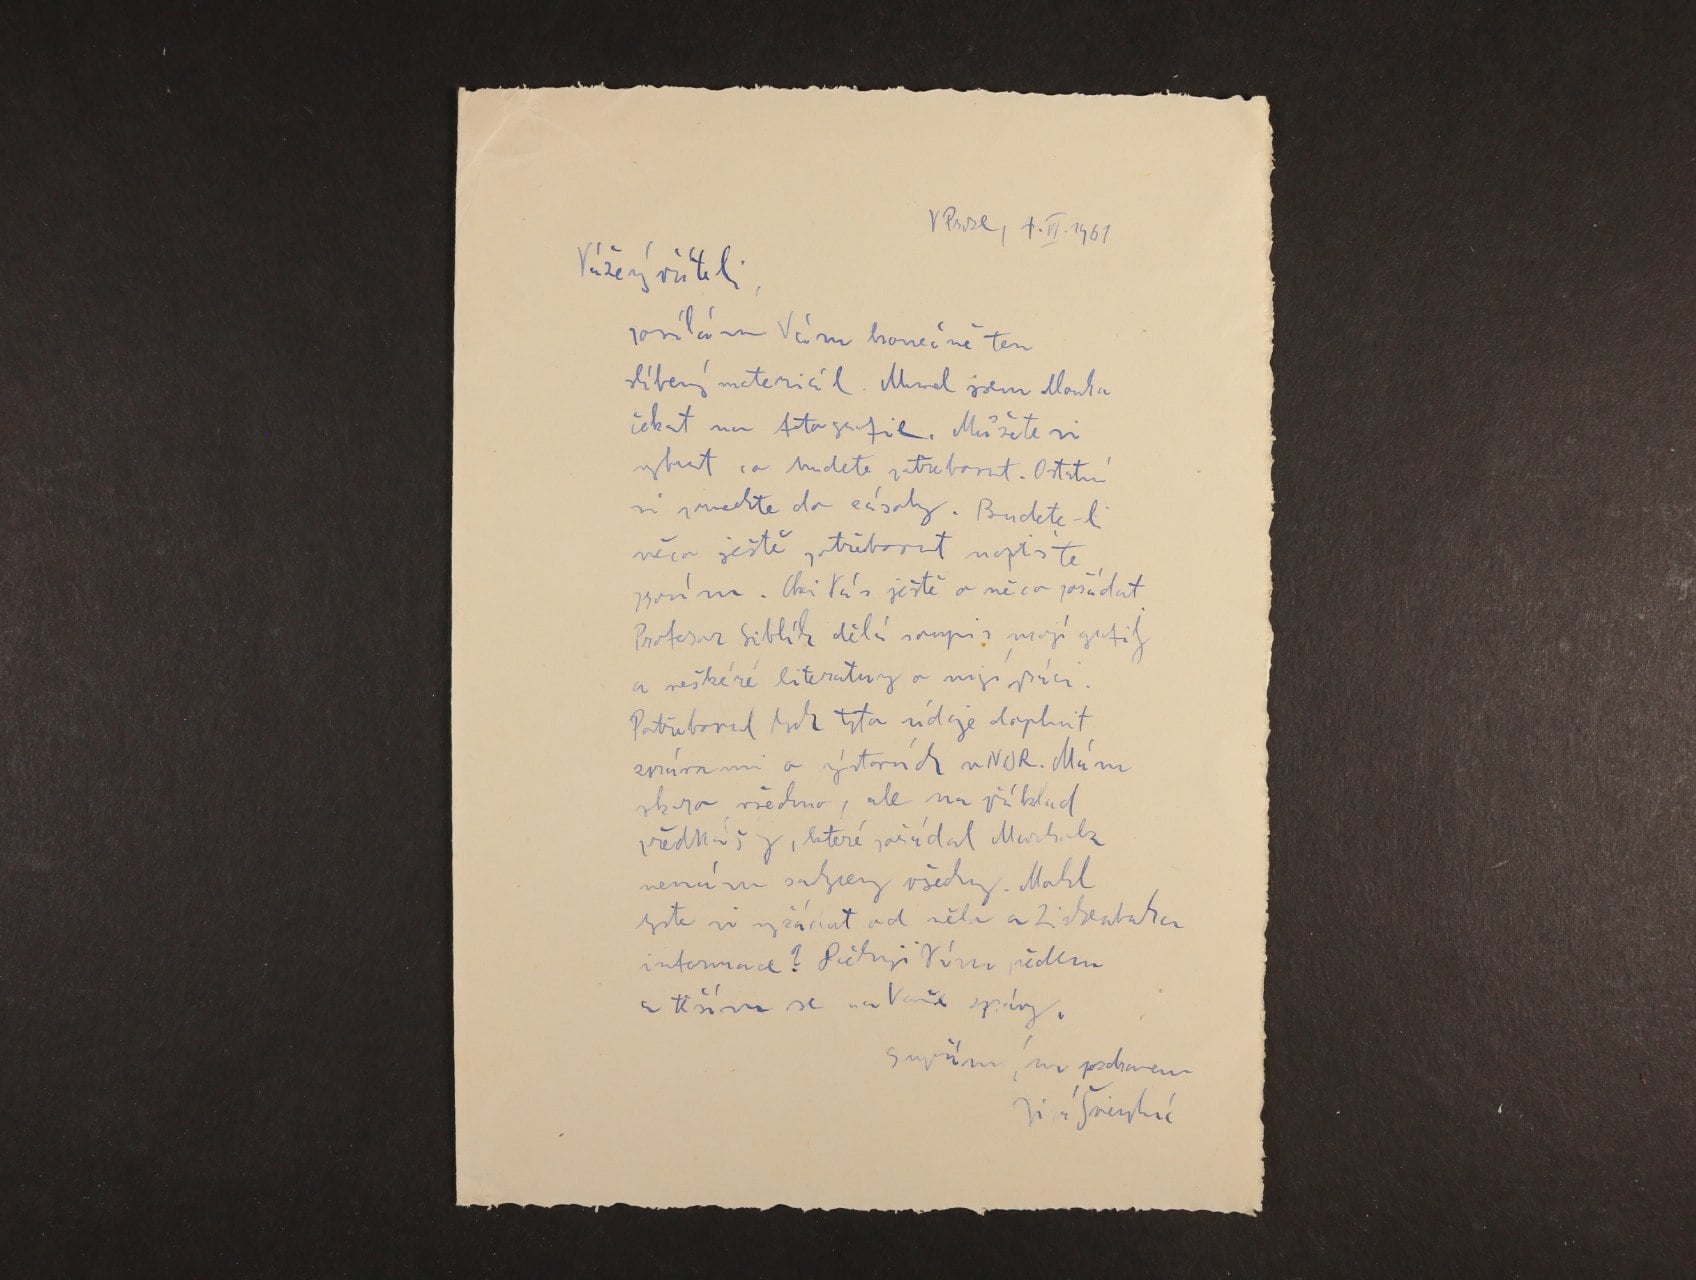 V Praze, 7.VI.1961
Vážený příteli,
posílám Vám konečně ten
slíbený materiál. Musel jsem dlouho
čekat na fotografie. Můžete si
vybrat co budete potřebovat. Ostatní
si ponechte do zásoby. Budete-li
něco ještě potřebovat napište
prosím. Chci Vás ještě o něco požádat
Profesor Siblík dělá soupis mojí grafiky
a veškeré literatury o mojí práci.
Potřeboval bych tyto údaje doplnit
zprávami o výstavách v NDR. Mám
skoro všechno, ale na příklad
přednášky, které pořádal
nemám zapsány všechny. Mohl
byste si vyžádat od něho a
informace? Děkuji Vám předem
a těším se na Vaše zprávy.
S upřímným pozdravem
Jiří Švengsbír